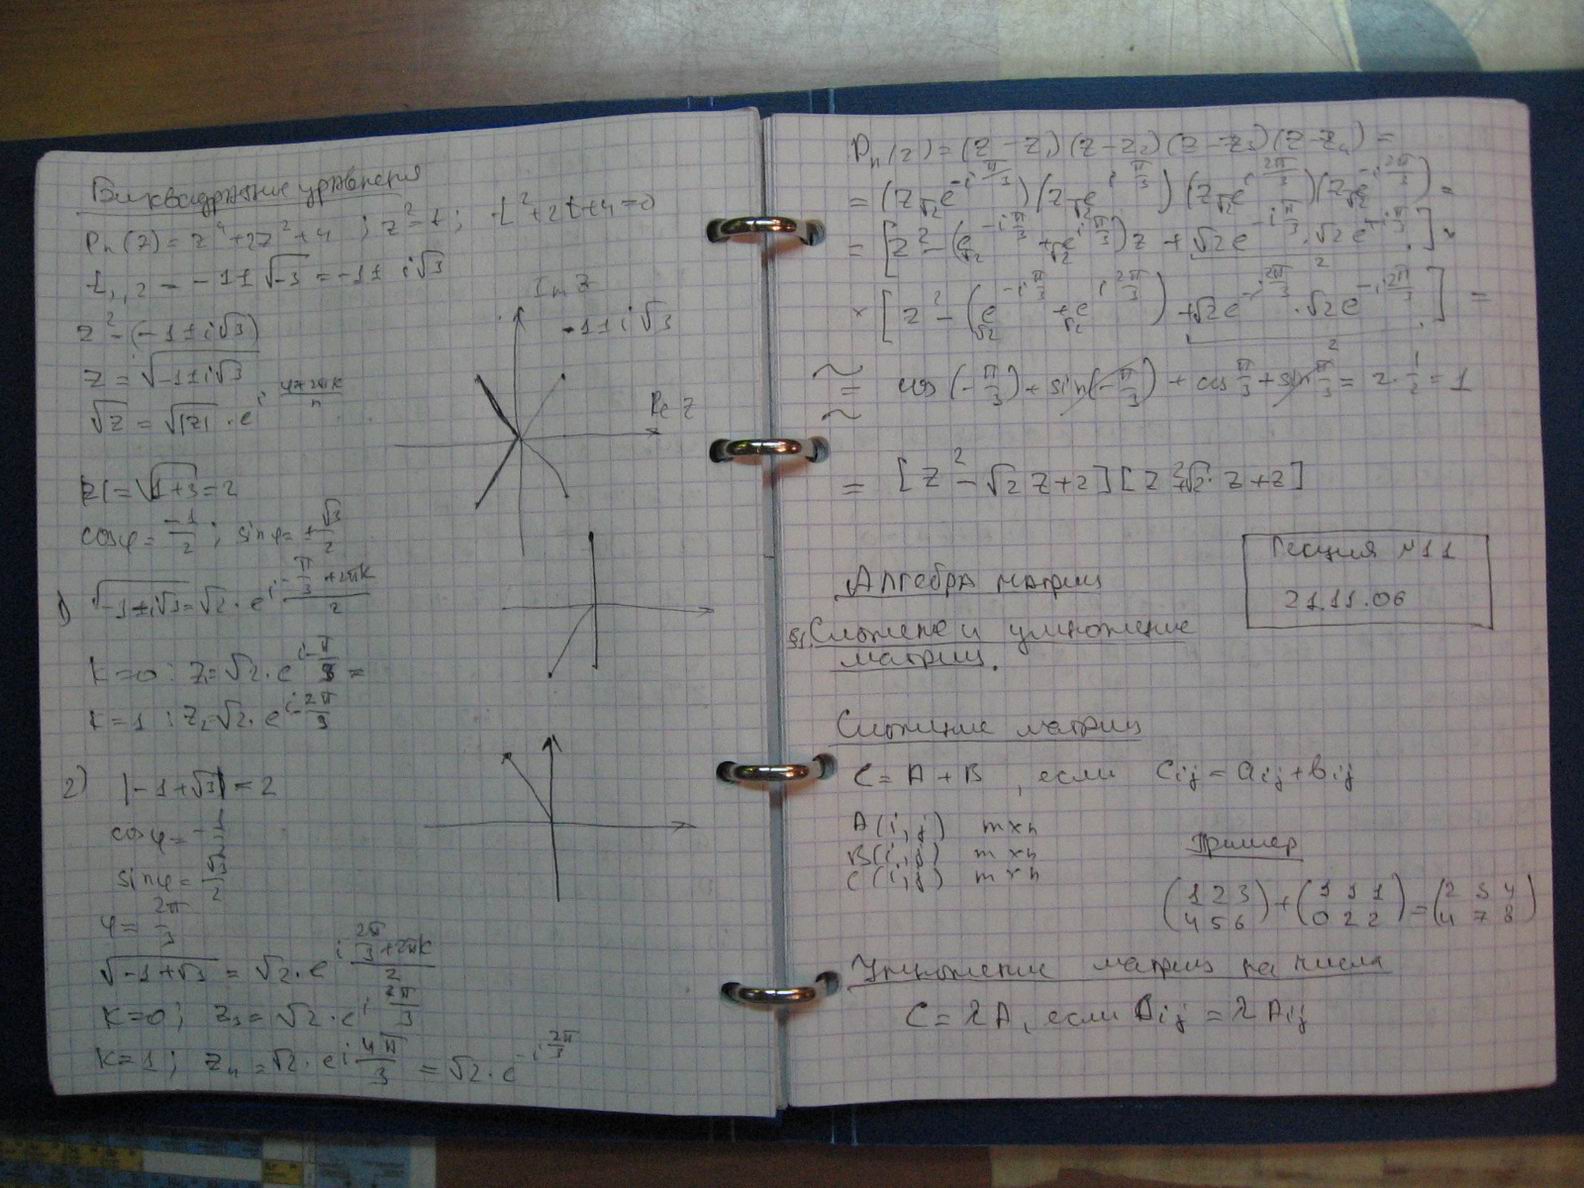 Биквадратные уравнения
Pn(z) = z⁴+2z²+4 ; z²=t ; t²+2t+4=0
t₁,₂ = -1±√-3 = -1± i√3
z² = (-1±i√3)
z = √-1±i√3
√z = √|z| · e^(i (φ+2πk)/n)
Im z
-1±i√3
Re z
|z| = √1+3 = 2
cosφ = -1/2 ; sinφ = ±√3/2
1) √-1+i√3 = √2 · e^(i (-π/3+2πk)/2)
k=0 : z₁=√2 · e^(i-π/3) =
k=1 : z₂=√2 · e^(i-2π/3)
2) |-1+√3| = 2
cosφ = -1/2
sinφ = √3/2
φ = 2π/3
√-1+√3 = √2 · e^(i (2π/3+2πk)/2)
k=0 ; z₃ = √2 · e^(i 2π/3)
k=1 ; z₄ = √2 · e^(i 4π/3) = √2 · e^(-i 2π/3)
Pn(z) = (z-z₁)(z-z₂)(z-z₃)(z-z₄) =
= (z√2e^(-iπ/3))(z√2e^(iπ/3))(z√2e^(i2π/3))(z√2e^(-i2π/3)) =
= [z² - (√2e^(-iπ/3) + √2e^(iπ/3))z + √2e^(-iπ/3) · √2e^(iπ/3)] ×
2
× [z² - (√2e^(-iπ/3) + √2e^(i2π/3)) + √2e^(-i2π/3) · √2e^(-i2π/3)] =
2
= cos(-π/3) + sin(-π/3) + cos π/3 + sin π/3 = 2 · 1/2 = 1
= [z² - √2 z+2][z²+√2 · z+2]
Лекция №11
21.11.06
Алгебра матриц
§1. Сложение и умножение
матриц.
Сложение матриц
C = A + B , если cij = aij + bij
A(i,j) m×n
B(i,j) m×n
C(i,j) m×n
Пример
(1 2 3) + (1 1 1) = (2 3 4)
(4 5 6) (0 2 2) (4 7 8)
Умножение матриц на числа
C = λA, если Bij = λAij